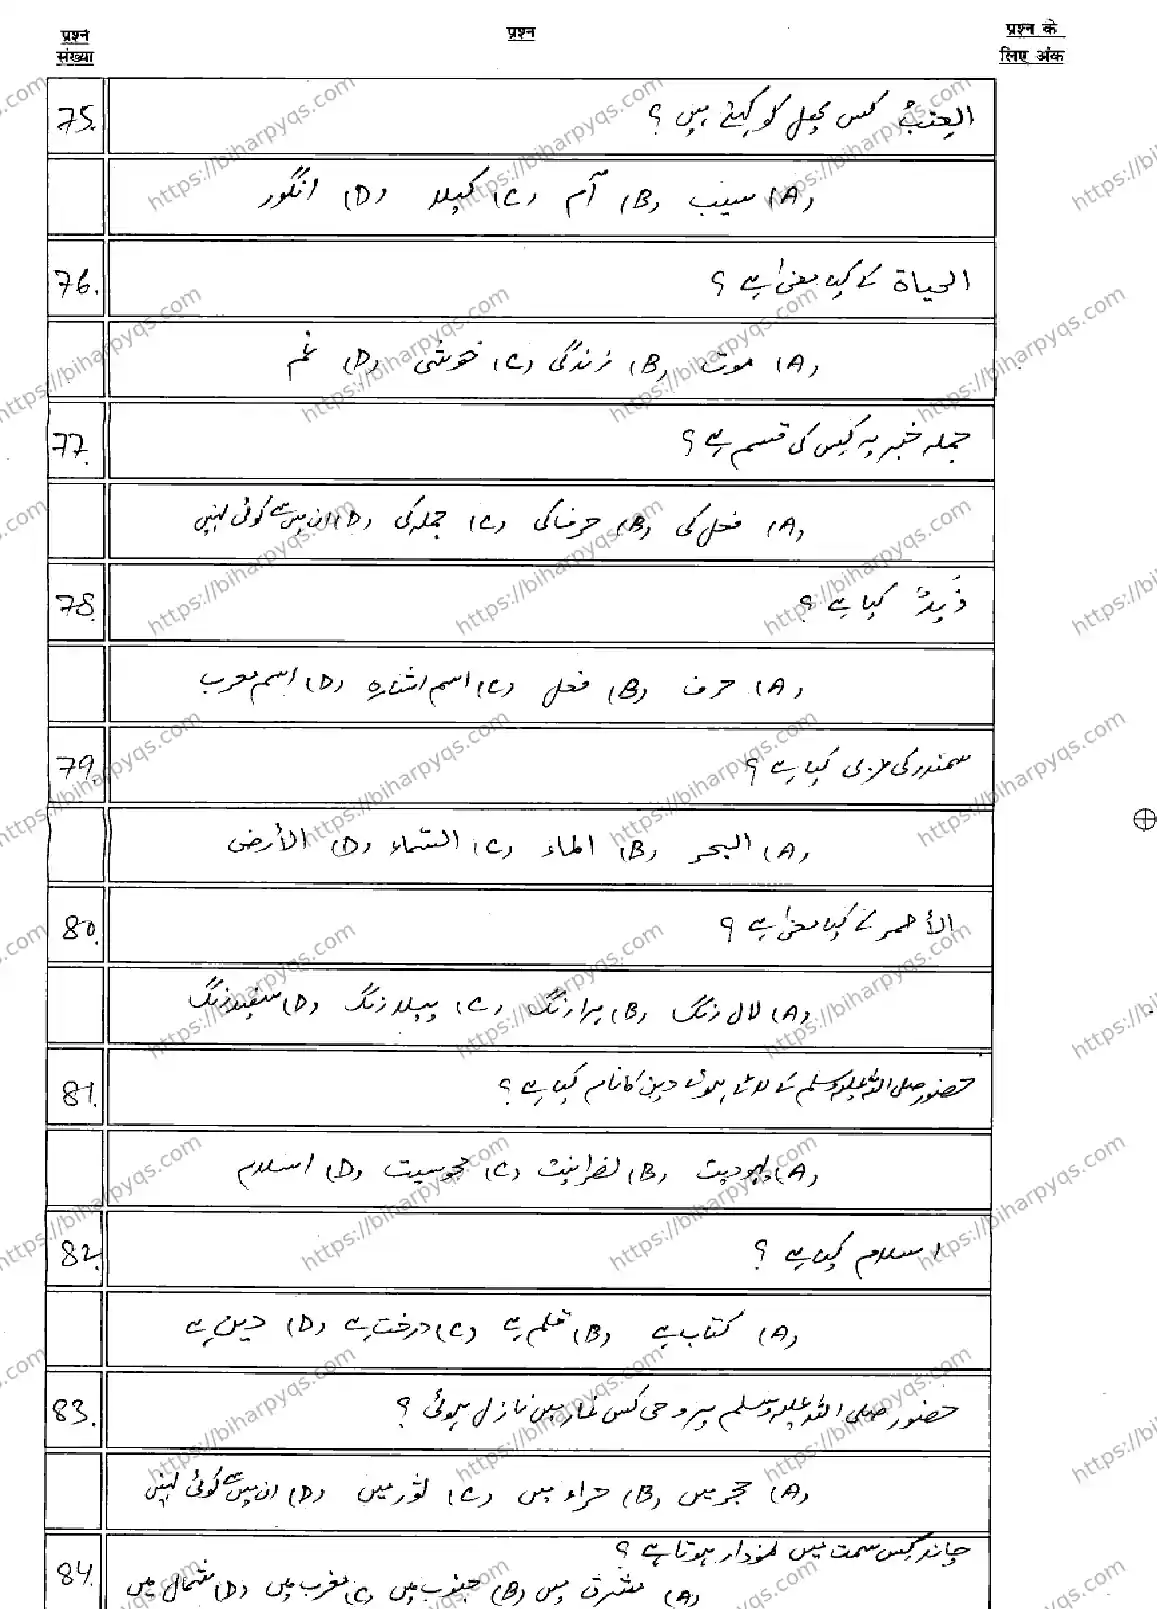 प्रश्न संख्या
प्रश्न
प्रश्न के लिए अंक
75. العنبُ کس پھل کو کہتے ہیں ؟
(A) سیب (B) آم (C) کیلا (D) انگور
76. الحیاۃ کے کیا معنیٰ ہے ؟
(A) موت (B) زندگی (C) خوشی (D) غم
77. جملہ خبریہ کس کی قسم ہے ؟
(A) فعل کی (B) حرف کی (C) جملہ کی (D) ان میں سے کوئی نہیں
78. زَیدٌ کیا ہے ؟
(A) حرف (B) فعل (C) اسم اشارہ (D) اسم معرب
79. سمندر کی عربی کیا ہے ؟
(A) البحر (B) الماء (C) السّماء (D) الأرض
80. الأحمر کے کیا معنیٰ ہے ؟
(A) لال رنگ (B) ہرا رنگ (C) پیلا رنگ (D) سفید رنگ
81. حضور صلی اللہ علیہ وسلم کے لائے ہوئے دین کا نام کیا ہے ؟
(A) یہودیت (B) نصرانیت (C) مجوسیت (D) اسلام
82. اسلام کیا ہے ؟
(A) کتاب ہے (B) قلم ہے (C) درخت ہے (D) دین ہے
83. حضور صلی اللہ علیہ وسلم پر وحی کس غار میں نازل ہوئی ؟
(A) حجر میں (B) حراء میں (C) ثور میں (D) ان میں سے کوئی نہیں
84. چاند کس سمت میں نمودار ہوتا ہے ؟
(A) مشرق میں (B) جنوب میں (C) مغرب میں (D) شمال میں
https://biharpyqs.com